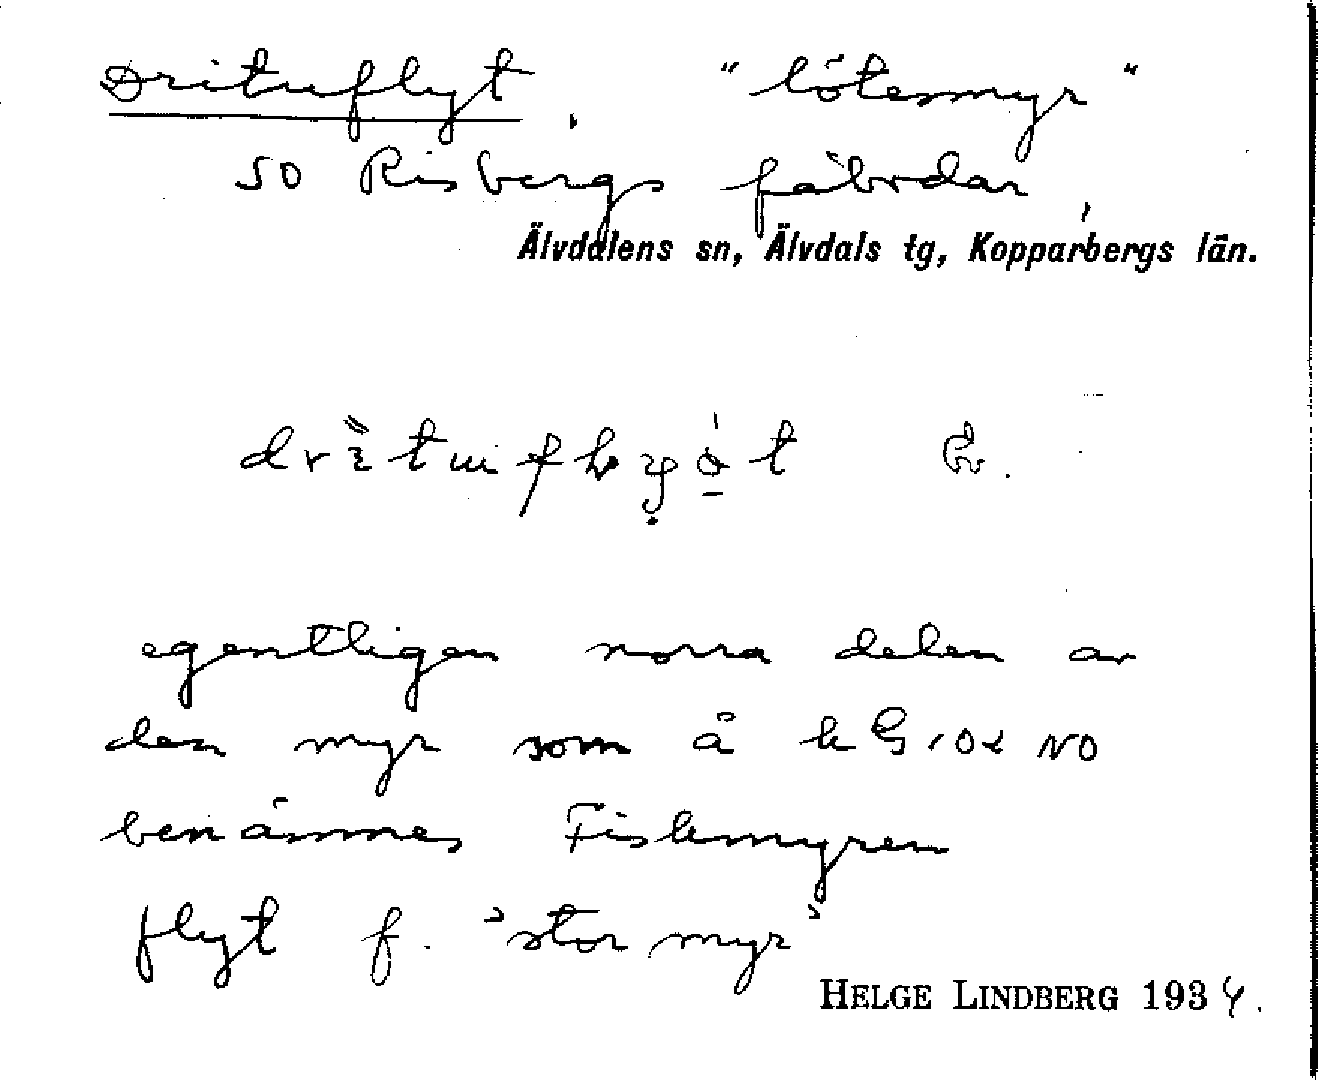 Drituflyt, "lötesmyr"
SO Risbergs fäbodar,
Älvdalens sn, Älvdals tg, Kopparbergs län.
egentligen norra delen av
den myr som å kG 108 NO
benämnes Fiskmyren
flyt f. "stor myr"
HELGE LINDBERG 1934.